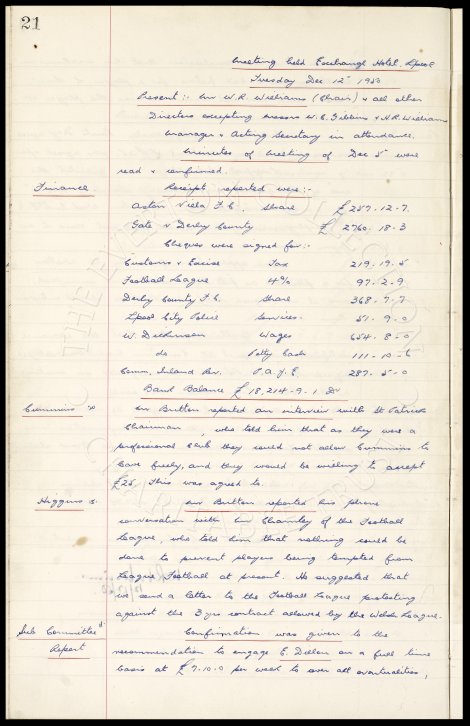 21
Meeting held Exchange Hotel, Lpool
Tuesday Dec 12th 1950
Present:- Mr W.R. Williams (Chair) & all other
Directors excepting Messrs W.C. Gibbins & N.R. Williams
Manager & Acting Secretary in attendance.
Minutes of Meeting of Dec 5th were
read & confirmed.
Finance Receipts reported were:-
Aston Villa F.C. Share £ 257-12-7.
Gate v Derby County £ 2760-18-3
Cheques were signed for:-
Customs & Excise Tax 219-19-5
Football League 4% 97-2-9
Derby County F.C. Share 368-7-7
Lpool City Police Services. 51-9-0
W. Dickinson Wages 654-8-0
do Petty Cash 111-10-6
Comm, Inland Rev. P.A.Y.E. 287-5-0
Bank Balance £18,214-9-1 Dr
Cummins Mr Britton reported an interview with St Patricks
Chairman, who told him that as they were a
professional club they could not allow Cummins to
leave freely, and they would be willing to accept
£25. This was agreed to.
Higgins Mr Britton reported his phone
conversation with Mr Charnley of the Football
League, who told him that nothing could be
done to prevent players being tempted from
League Football at present. He suggested that
we send a letter to the Football League protesting
against the 3 yrs contract allowed by the Welsh League.
Sub Committee's Confirmation was given to the
Report recommendation to engage E. Dillon on a full time
basis at £7-10-0 per week to cover all eventualities,